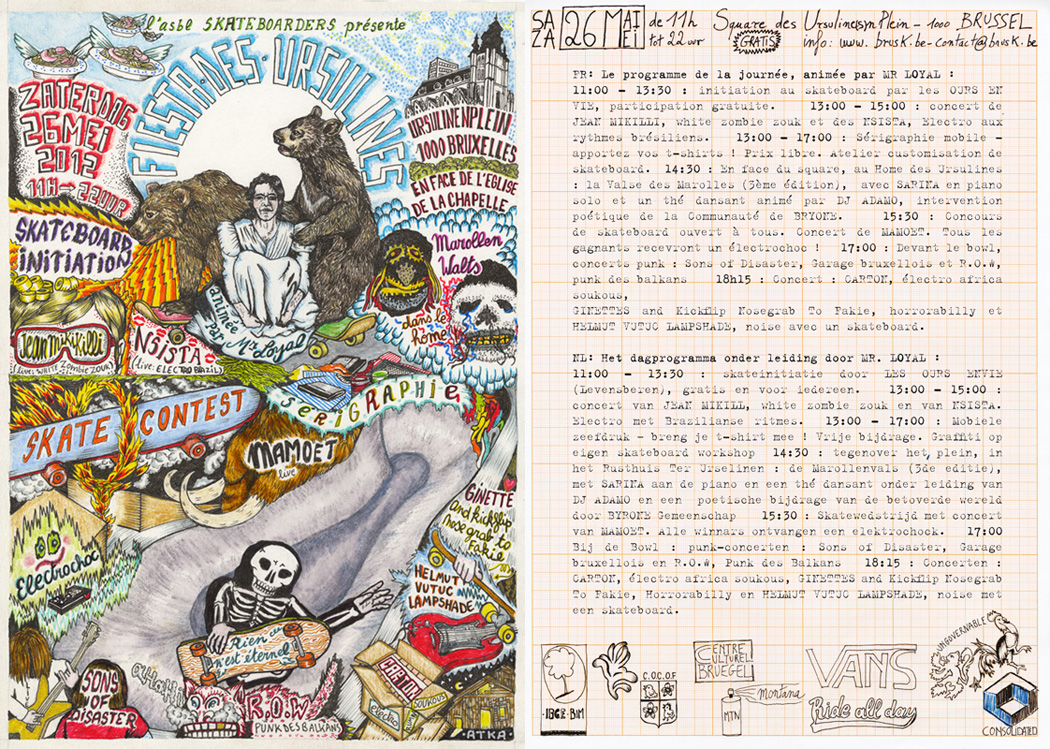 l'asbl SKATEBOARDERS présente
FIESTA·DES·URSULINES
ZATERDAG
26 MEI
2012
11H→22UUR
URSULINENPLEIN
1000 BRUXELLES
EN FACE DE L'EGLISE
DE LA CHAPELLE
SKATEBOARD
INITIATION
Marollen
Walts
dans le
home
animée
par Mr Loyal
Jean Mikikilli
(live: WHITE ZOMBIE ZOUK)
NSISTA
(live: ELECTRO BRAZIL)
SERIGRAPHIE
SKATE CONTEST
MAMOET
live
GINETTE
and kickflip
nose grab to
Fakie
Electrochoc
HELMUT
VUTUC
LAMPSHADE
Rien
n'est éternel
SONS
OF
DISASTER
R.O.W
PUNK DES BALKANS
CARTON
electro
SOUKOUS
·ATKA·
SA
ZA
26 MAI
MEI
de 11h
tot 22 uur
GRATIS
Square des Ursulines/yn Plein - 1000 BRUSSEL
info: www.brusk.be - contact@brusk.be
FR: Le programme de la journée, animée par MR LOYAL :
11:00 - 13:30 : initiation au skateboard par les OURS EN
VIE, participation gratuite. 13:00 - 15:00 : concert de
JEAN MIKILLI, white zombie zouk et des NSISTA, Electro aux
rythmes brésiliens. 13:00 - 17:00 : Sérigraphie mobile -
apportez vos t-shirts ! Prix libre. Atelier customisation de
skateboard. 14:30 : En face du square, au Home des Ursulines
: la Valse des Marolles (3ème édition), avec SARINA en piano
solo et un thé dansant animé par DJ ADAMO, intervention
poétique de la Communauté de BRYONE. 15:30 : Concours
de skateboard ouvert à tous. Concert de MAMOET. Tous les
gagnants recevront un électrochoc ! 17:00 : Devant le bowl,
concerts punk : Sons of Disaster, Garage bruxellois et R.O.W,
punk des balkans 18h15 : Concert : CARTON, électro africa
soukous,
GINETTES and Kickflip Nosegrab To Fakie, horrorabilly et
HELMUT VUTUC LAMPSHADE, noise avec un skateboard.
NL: Het dagprogramma onder leiding door MR. LOYAL :
11:00 - 13:30 : skateinitiatie door LES OURS ENVIE
(Levensberen), gratis en voor iedereen. 13:00 - 15:00 :
concert van JEAN MIKILL, white zombie zouk en van NSISTA.
Electro met Brazilianse ritmes. 13:00 - 17:00 : Mobiele
zeefdruk - breng je t-shirt mee ! Vrije bijdrage. Graffiti op
eigen skateboard workshop 14:30 : tegenover het plein, in
het Rusthuis Ter Urselinen : de Marollenvals (3de editie),
met SARINA aan de piano en een thé dansant onder leiding van
DJ ADAMO en een poetische bijdrage van de betoverde wereld
door BYRONE Gemeenschap 15:30 : Skatewedstrijd met concert
van MAMOET. Alle winnars ontvangen een elektrochock. 17:00
Bij de Bowl : punk-concerten : Sons of Disaster, Garage
bruxellois en R.O.W, Punk des Balkans 18:15 : Concerten :
CARTON, électro africa soukous, GINETTES and Kickflip Nosegrab
To Fakie, Horrorabilly en HELMUT VUTUC LAMPSHADE, noise met
een skateboard.
·IBGE·BIM
C.O.C.O.F
CENTRE
CULTUREL
BRUEGEL
MTN
Montana
VANS
Ride all day
UNGOVERNABLE
CONSOLIDATED